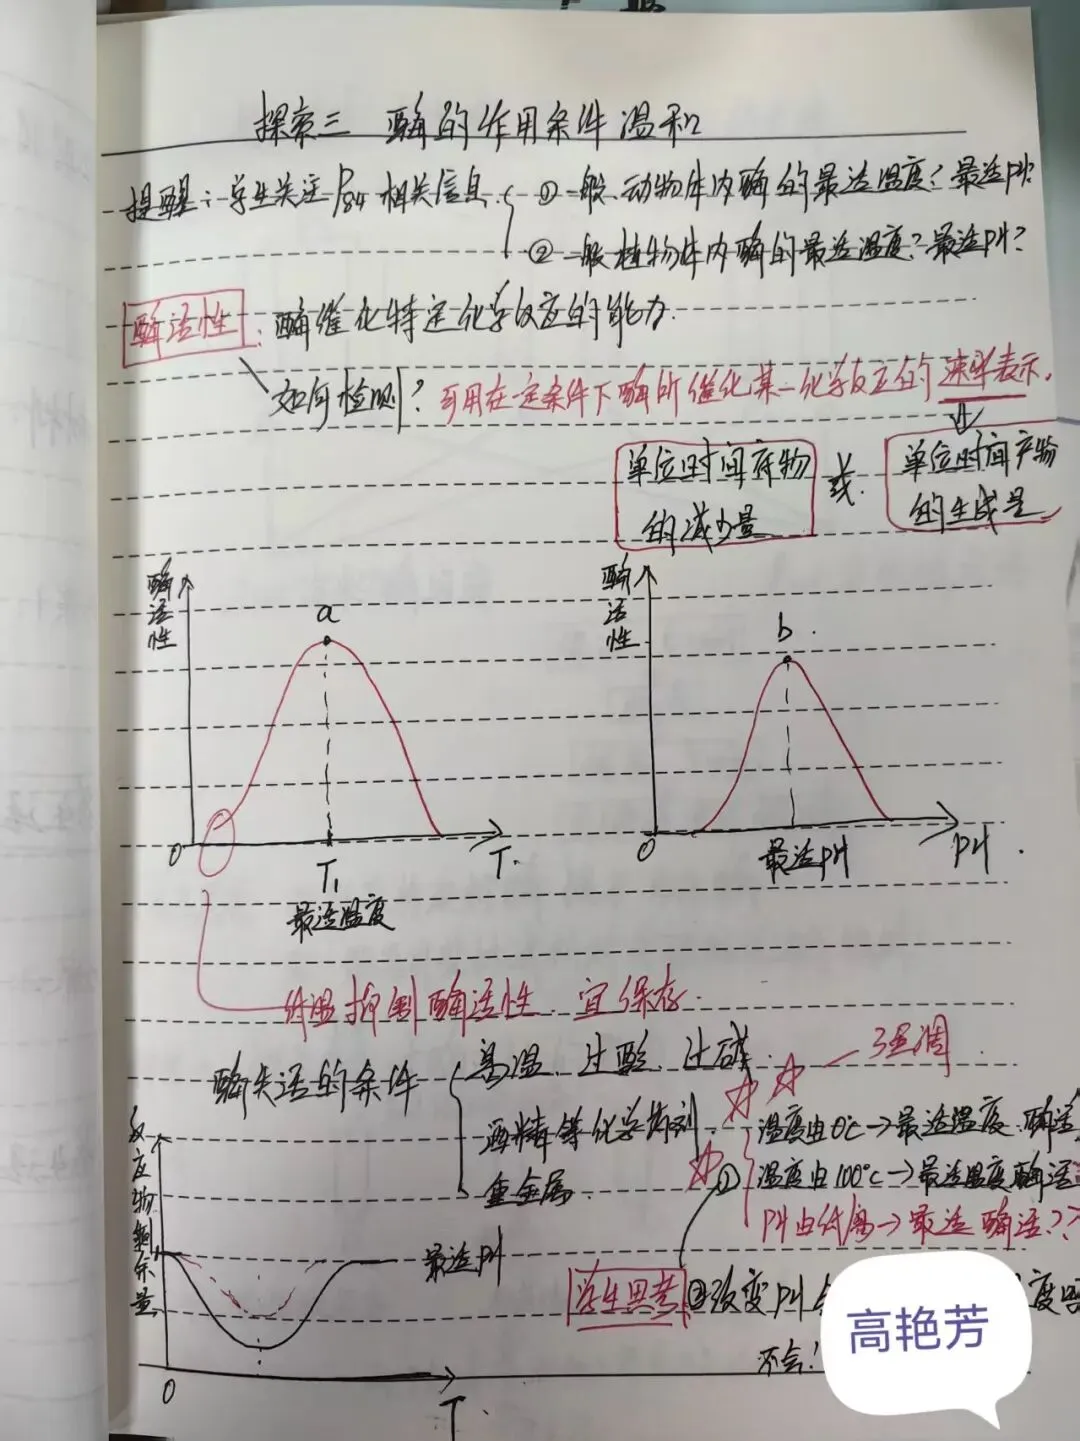 探索三 酶的作用条件温和
提醒：学生关注P84相关信息 ①一般动物体内酶的最适温度？最适PH？
②一般植物体内酶的最适温度？最适PH？
酶活性：酶催化特定化学反应的能力.
如何检测？可用在一定条件下酶所催化某一化学反应的速率表示.
单位时间底物的减少量 或 单位时间产物的生成量
酶活性
a
O
T₁
T.
最适温度
酶活性
b
O
最适PH
PH
低温抑制酶活性、宜保存.
酶失活的条件
高温、过酸、过碱.
酒精等化学
重金属.
强调
温度由0℃→最适温度.酶活
① 温度由100℃→最适温度酶活
PH由低高→最适 酶活??
学生思考
②改变PH
度
不会！
反应物剩余量
最适PH
O
T.
高艳芳